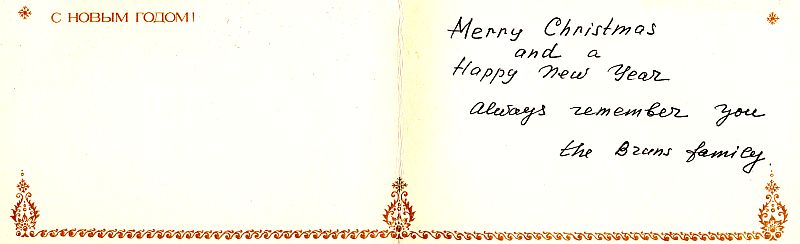 С НОВЫМ ГОДОМ!
Merry Christmas
and a
Happy New Year
Always remember you
the Bruns family.